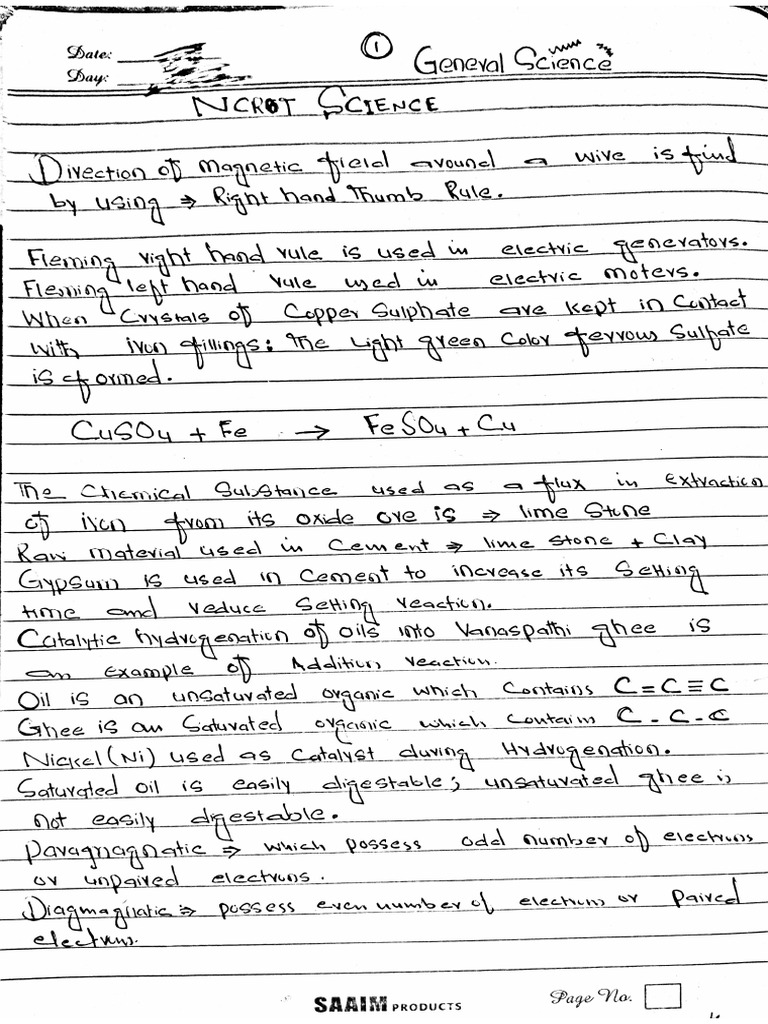 Date:
①
General Science
Day:
NCROT SCIENCE
Direction of magnetic field around a wire is find
by using ⇒ Right hand Thumb Rule.
Fleming right hand rule is used in electric generators.
Fleming left hand rule used in electric moters.
When Crystals of Copper Sulphate are kept in Contact
with iron fillings: The Light green Color ferrous Sulfate
is formed.
CuSO4 + Fe → FeSO4 + Cu
The Chemical Substance used as a flux in Extraction
of iron from its oxide ore is ⇒ lime Stone
Raw material used in Cement ⇒ lime stone + Clay
Gypsum is used in Cement to increase its Setting
time and reduce Setting reaction.
Catalytic hydrogenation of oils into Vanaspathi ghee is
an Example of Addition reaction.
Oil is an unsaturated organic which Contains C=C≡C
Ghee is an Saturated organic which Contain C-C-C
Nickel (Ni) used as Catalyst during Hydrogenation.
Saturated oil is easily digestable; unsaturated ghee is
not easily digestable.
Paragmagnatic ⇒ which possess odd number of electrons
or unpaired electrons.
Diagmagnatic ⇒ possess even number of electrons or Paired
electrons.
SAAIM PRODUCTS
Page No.